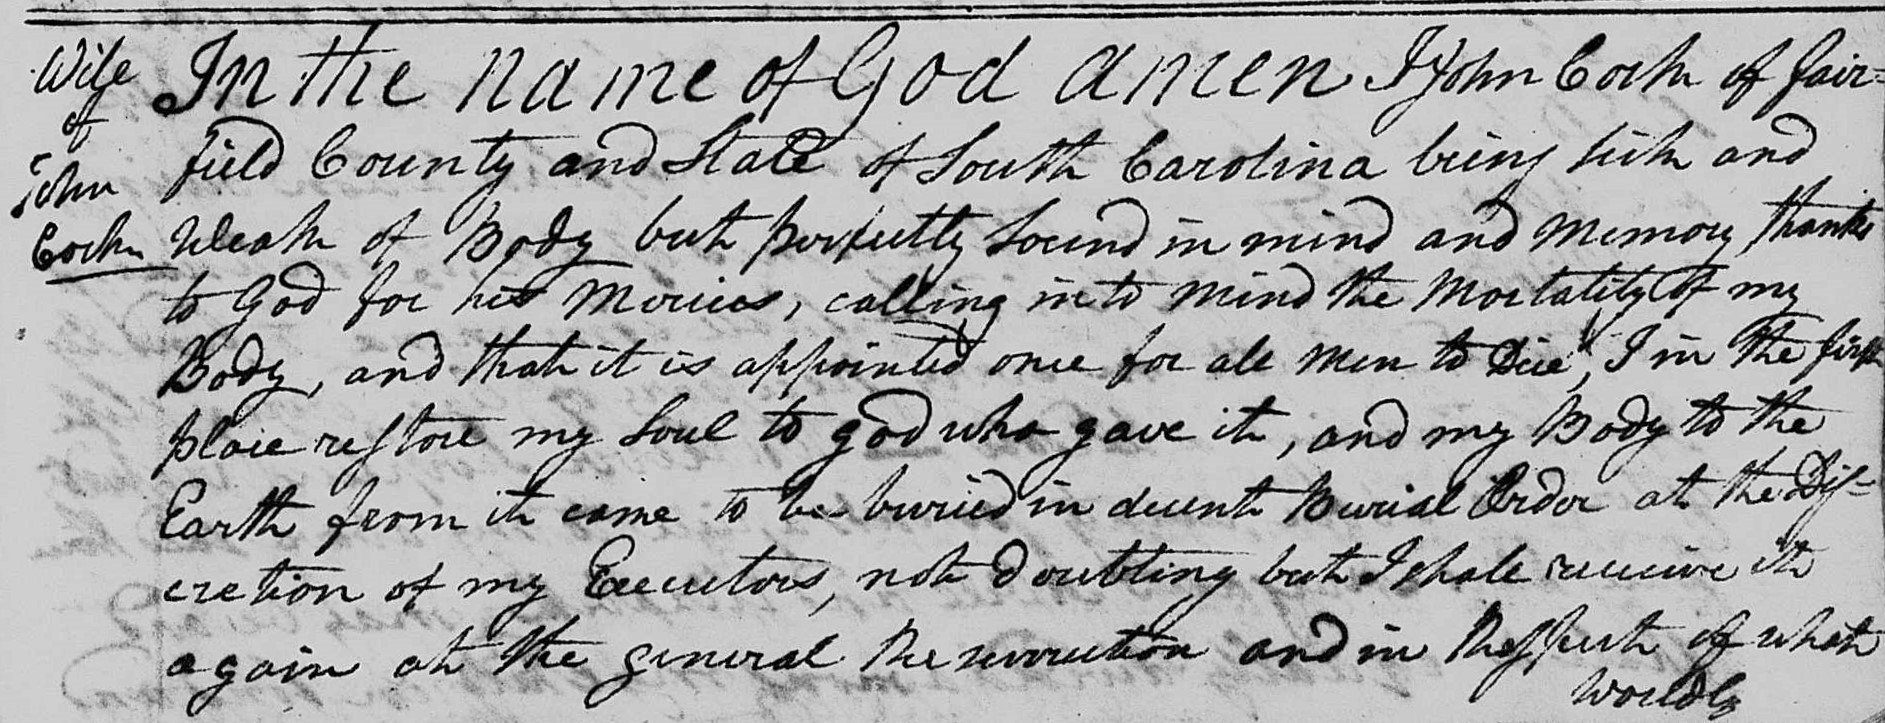 Wife
of
John
Cock
In the name of God amen I John Cock of Fair=
field County and State of South Carolina being sick and
Weak of Body but perfectly Sound in mind and Memory thanks
to God for his Mercies, calling into mind the Mortality of my
Body, and that it is appointed once for all Men to Die, I in the first
place restore my Soul to god who gave it, and my Body to the
Earth from it came to be buried in decent Burial Order at the Dis=
cretion of my Executors, not doubting but I shall receive it
again at the general Resurrection and in Respect of what
Worldly